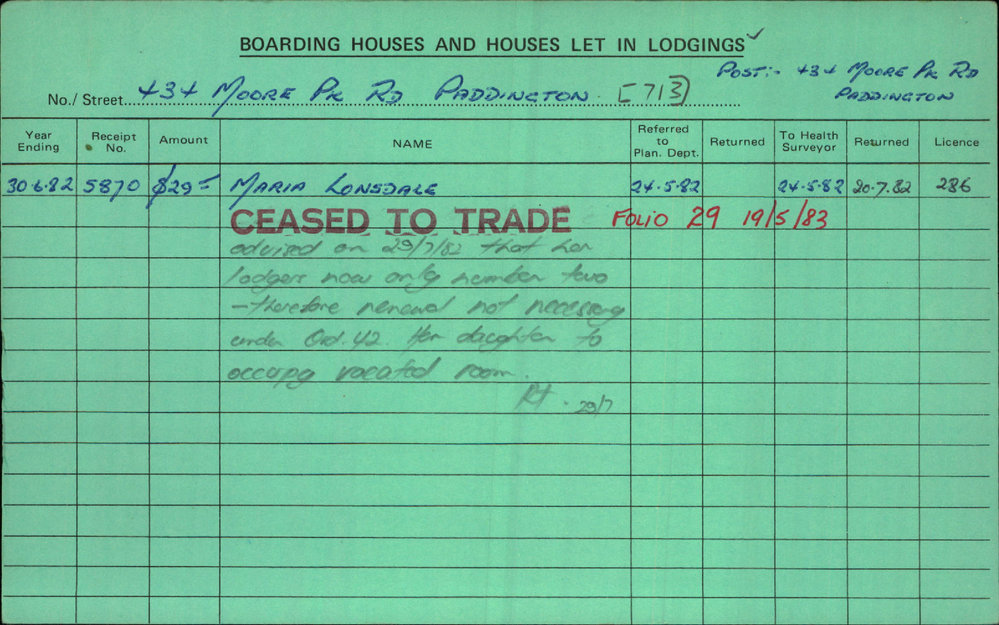 BOARDING HOUSES AND HOUSES LET IN LODGINGS ✓
POST:- 434 MOORE PK RD
PADDINGTON
No./ Street 434 MOORE PK RD PADDINGTON. [713]
Year Ending Receipt No. Amount NAME Referred to Plan. Dept. Returned To Health Surveyor Returned Licence
30·6·82 5870 $29= MARIA LONSDALE 24·5·82 24·5·82 20·7·82 286
CEASED TO TRADE FOLIO 29 19/5/83
advised on 29/7/82 that her
lodgers now only number two
- therefore renewal not necessary
under Ord. 42. Her daughter to
occupy vacated room.
29/7